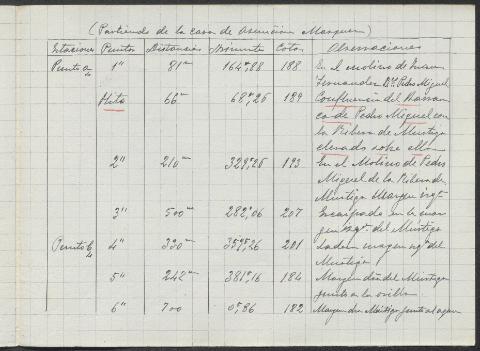 (Partiendo de la casa de Asención Marquez)
Estaciones Puntos Distancias Azimute Cotas Observaciones
Punto a 1" 81m 164°,88 188 En el molino de Juan
Fernandez Dº Pedro Miguel
Hito 66m 68°,26 189 Confluencia del Barran
co de Pedro Miguel con
la Ribera de Múrtiga
clavado sobre
2" 210m 329°,26 193 En el Molino de Pedro
Miguel de la Ribera de
Múrtiga Margen izqª
3" 500m 282°,06 207 Encarpado en la mar
gen izqª. del Múrtiga
Punto b 4" 330m 201 margen izqª del
Múrtiga
5" 242m 381°,16 184 Margen dra del Múrtiga
junto a la orilla
6" 700 0°,86 182 Margen dra Múrtiga junto al agua